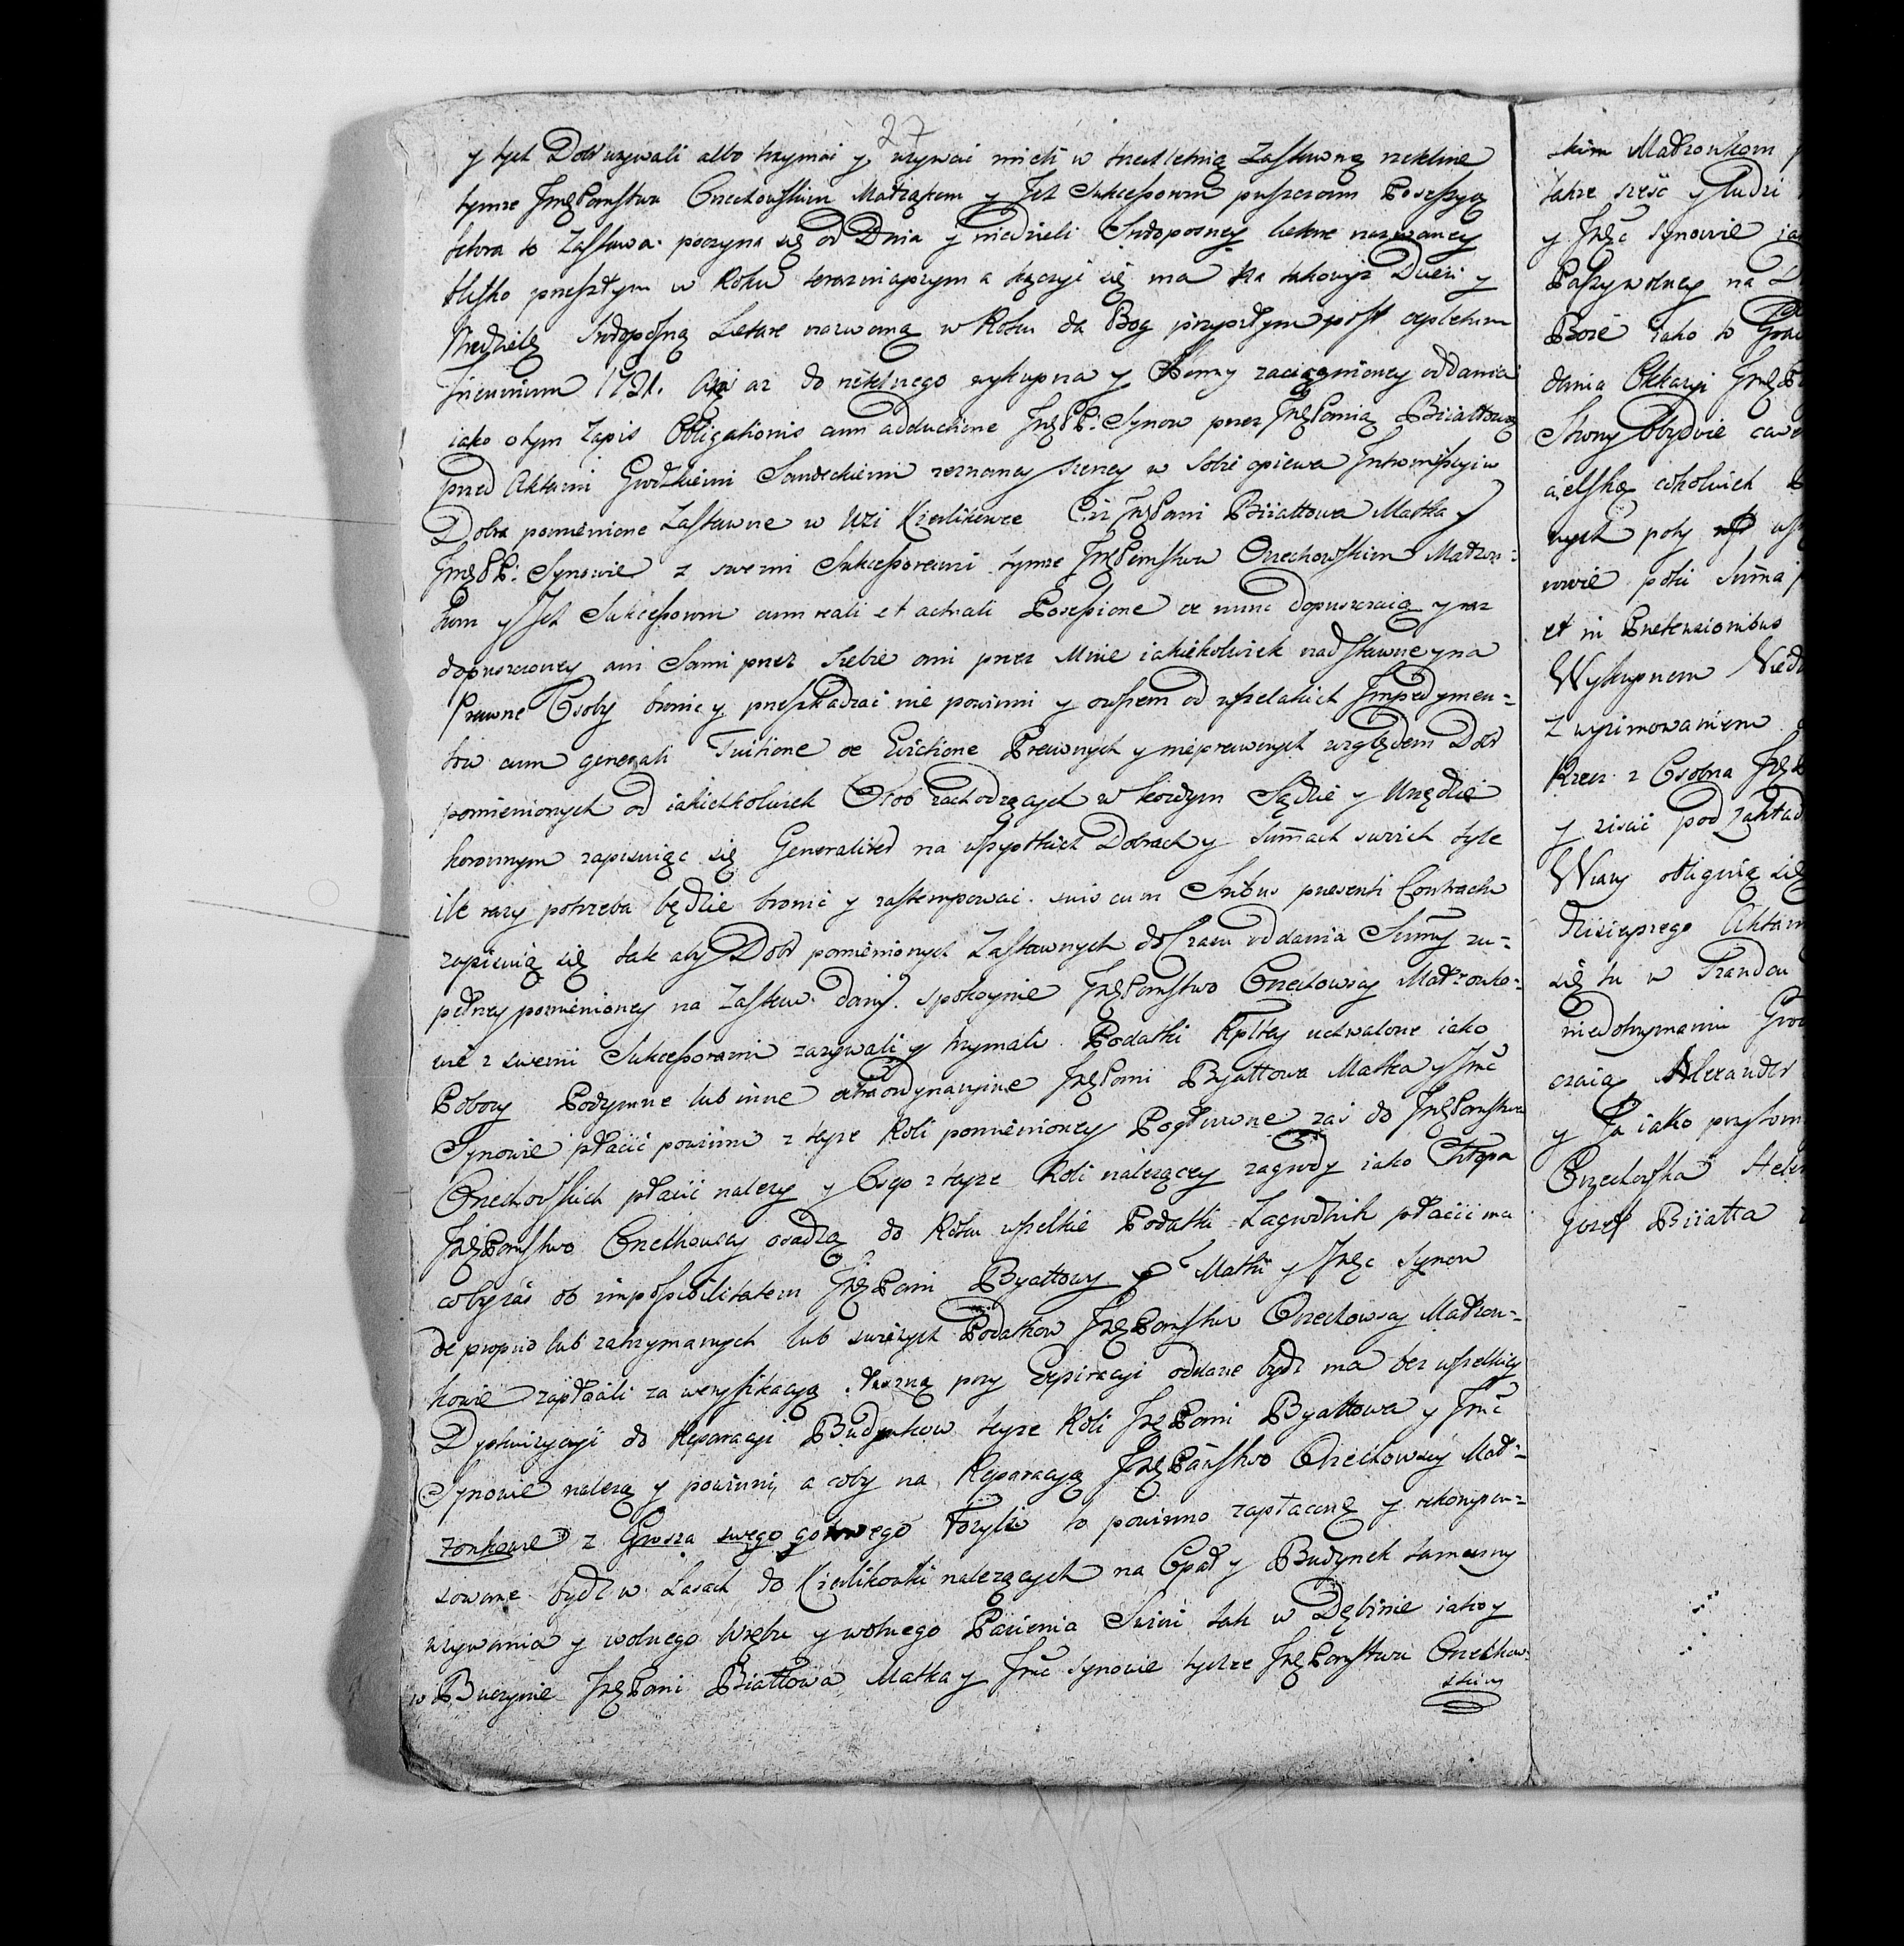 27
y tych Dobr uzywali albo trzymać y uzywać mieli w trzechletnią Zastawną rzetelnie
tymze JmęPanstwu Orzechowskim Małżąkom y Ich Sukcessorom puszczam Possessyą
ktora to Zastawa poczyna się od Dnia y niedzieli Srodoposney Letare nazwaney
blisko przeszłym w Roku terazniayszym a kączyć się ma na takowyż Dzień y
Niedzielę Srodoposną Letare nazwaną w Roku da Bog przyszłym post expletum
trienium 1721. aż do rzetelnego wykupna y Summy zaciągnioney oddania
iako o tym Zapis Obligationis cum adductione JmęPP. Synow przez JmęPanią Biiattową
przed Aktami Grodzkiemi Sandeckiemi zeznany szerzey w sobie opiewa Intromissyi w
Dobra pomienione Zastawne w Wzi Kierlikowce Ciż JmęPani Biiattowa Matka y
JmęPP. Synowie z swemi Sukcessorami tymze JmęPanstwu Orzechowskim Małzon=
kom y Ich Sukcessorom cum reali et actuali Possessione ex nunc dopuszczaią y raz
dopuszczoney ani Sami przez siebie ani przez Mnie iakiekolwiek nadstawne y na
Prawne Osoby bronić y przeszkadzać nie powinni y owszem od wszelakich Impedymen=
tow cum generali Tuitione ac Evictione Prawnych y nieprawnych względem Dobr
pomienionych od iakichkolwiek Osob zachodzących w kozdym Sądzie y Urzędzie
koronnym zapisuiąc się Generaliter na wszystkich Dobrach y Summach swoich tyle
ile razy potrzeba będzie bronić y zastempować suis cum Sribus presenti Contractu
zapisuią się tak aby Dobr pomienionych Zastawnych do Czasu oddania Summy zu=
pełney pomienioney na Zastaw daney spokoynie JmęPanstwo Orzechowscy Małżonko=
wie z swemi Sukcessorami zazywali y trzymali Podatki Rpltey uchwalone iako
Pobory Podymne lub inne extraordynaryine JmęPani Byattowa Matka y Jmć
Synowie płacić powinni z teyze Roli pomienioney Pogłowne zaś do JmęPanstwa
Orzechowskich płacić nalezy y Csego z teyze Roli nalezącey zagrody iako Chłopa
JmęPanstwo Orzechowscy osadzą do Roku wszelkie Podatki Zagrodnik płacić ma
coby zaś ob impossibilitatem JmęPani Byattowy Matki y Jmęc Synow
de proprio lub zatrzymanych lub swiezych Podatkow JmęPanstwo Orzechowscy Małżon=
kowie zapłacili za weryfikacyą słuszną przy Expiracyi oddane bydz ma bez wszelkiey
Dyskwizycyi do Reparacyi Budynkow teyze Roli JmęPani Byattowa y Jmć
Synowie nalezą y powinni, a coby na Reparacyą JmęPaństwo Orzechowscy Mał=
zonkowie z Grosza swego gotowego łozyli to powinno zapłacone y rekompen=
sowane bydz w Lasach do Kierlikowki nalezących na Opał y Budynek tameczny
uzywania y wolnego Wrębu y wolnego Pasienia Swini tak w Dębinie iako y
w Buczynie JmęPani Biattowa Matka y Jmć synowie tychze JmęPanstwu Orzechow
skim
skim Małżonkom
takze sześć y Ludzi
y Jmęc Synowie
Paszy wolney na
Boze iako to
dania Okkazyi Jmę
Strony Obydwie
cielską cokolwiek
nych poty
wie poki Summa
et in Pretensionibus
Wykupnem Niedz
z wyimowaniem
Rzecz z Osobna Jmę
y ziscić pod zakład
Wiary obliguią się
dzisieyszego Aktam
się tu w
niedotrzymaniu Gro
czaią Alexander
y Ja iako przytom
Orzechowska Hele
Jozef Biiatta